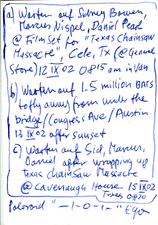 a) Warten auf Sidney Bowen,
Marcus Nispel, Daniel Pearl
@ Film Set for "Texas Chainsaw
Massacre", Cele, Tx (@General
Store) 12 IX 02 0815 am in Van
b) Warten auf 1.5 million BATS
to fly away from under the
bridge/Congress Ave/Austin
13 IX 02 after sunset
c) Warten auf Sid, Marcus,
Daniel after wrapping up
Texas Chainsaw Massacre
@ Cavenaugh House 15 IX 02
Texas 0830
Polaroid "-1-0-1-" "Ego